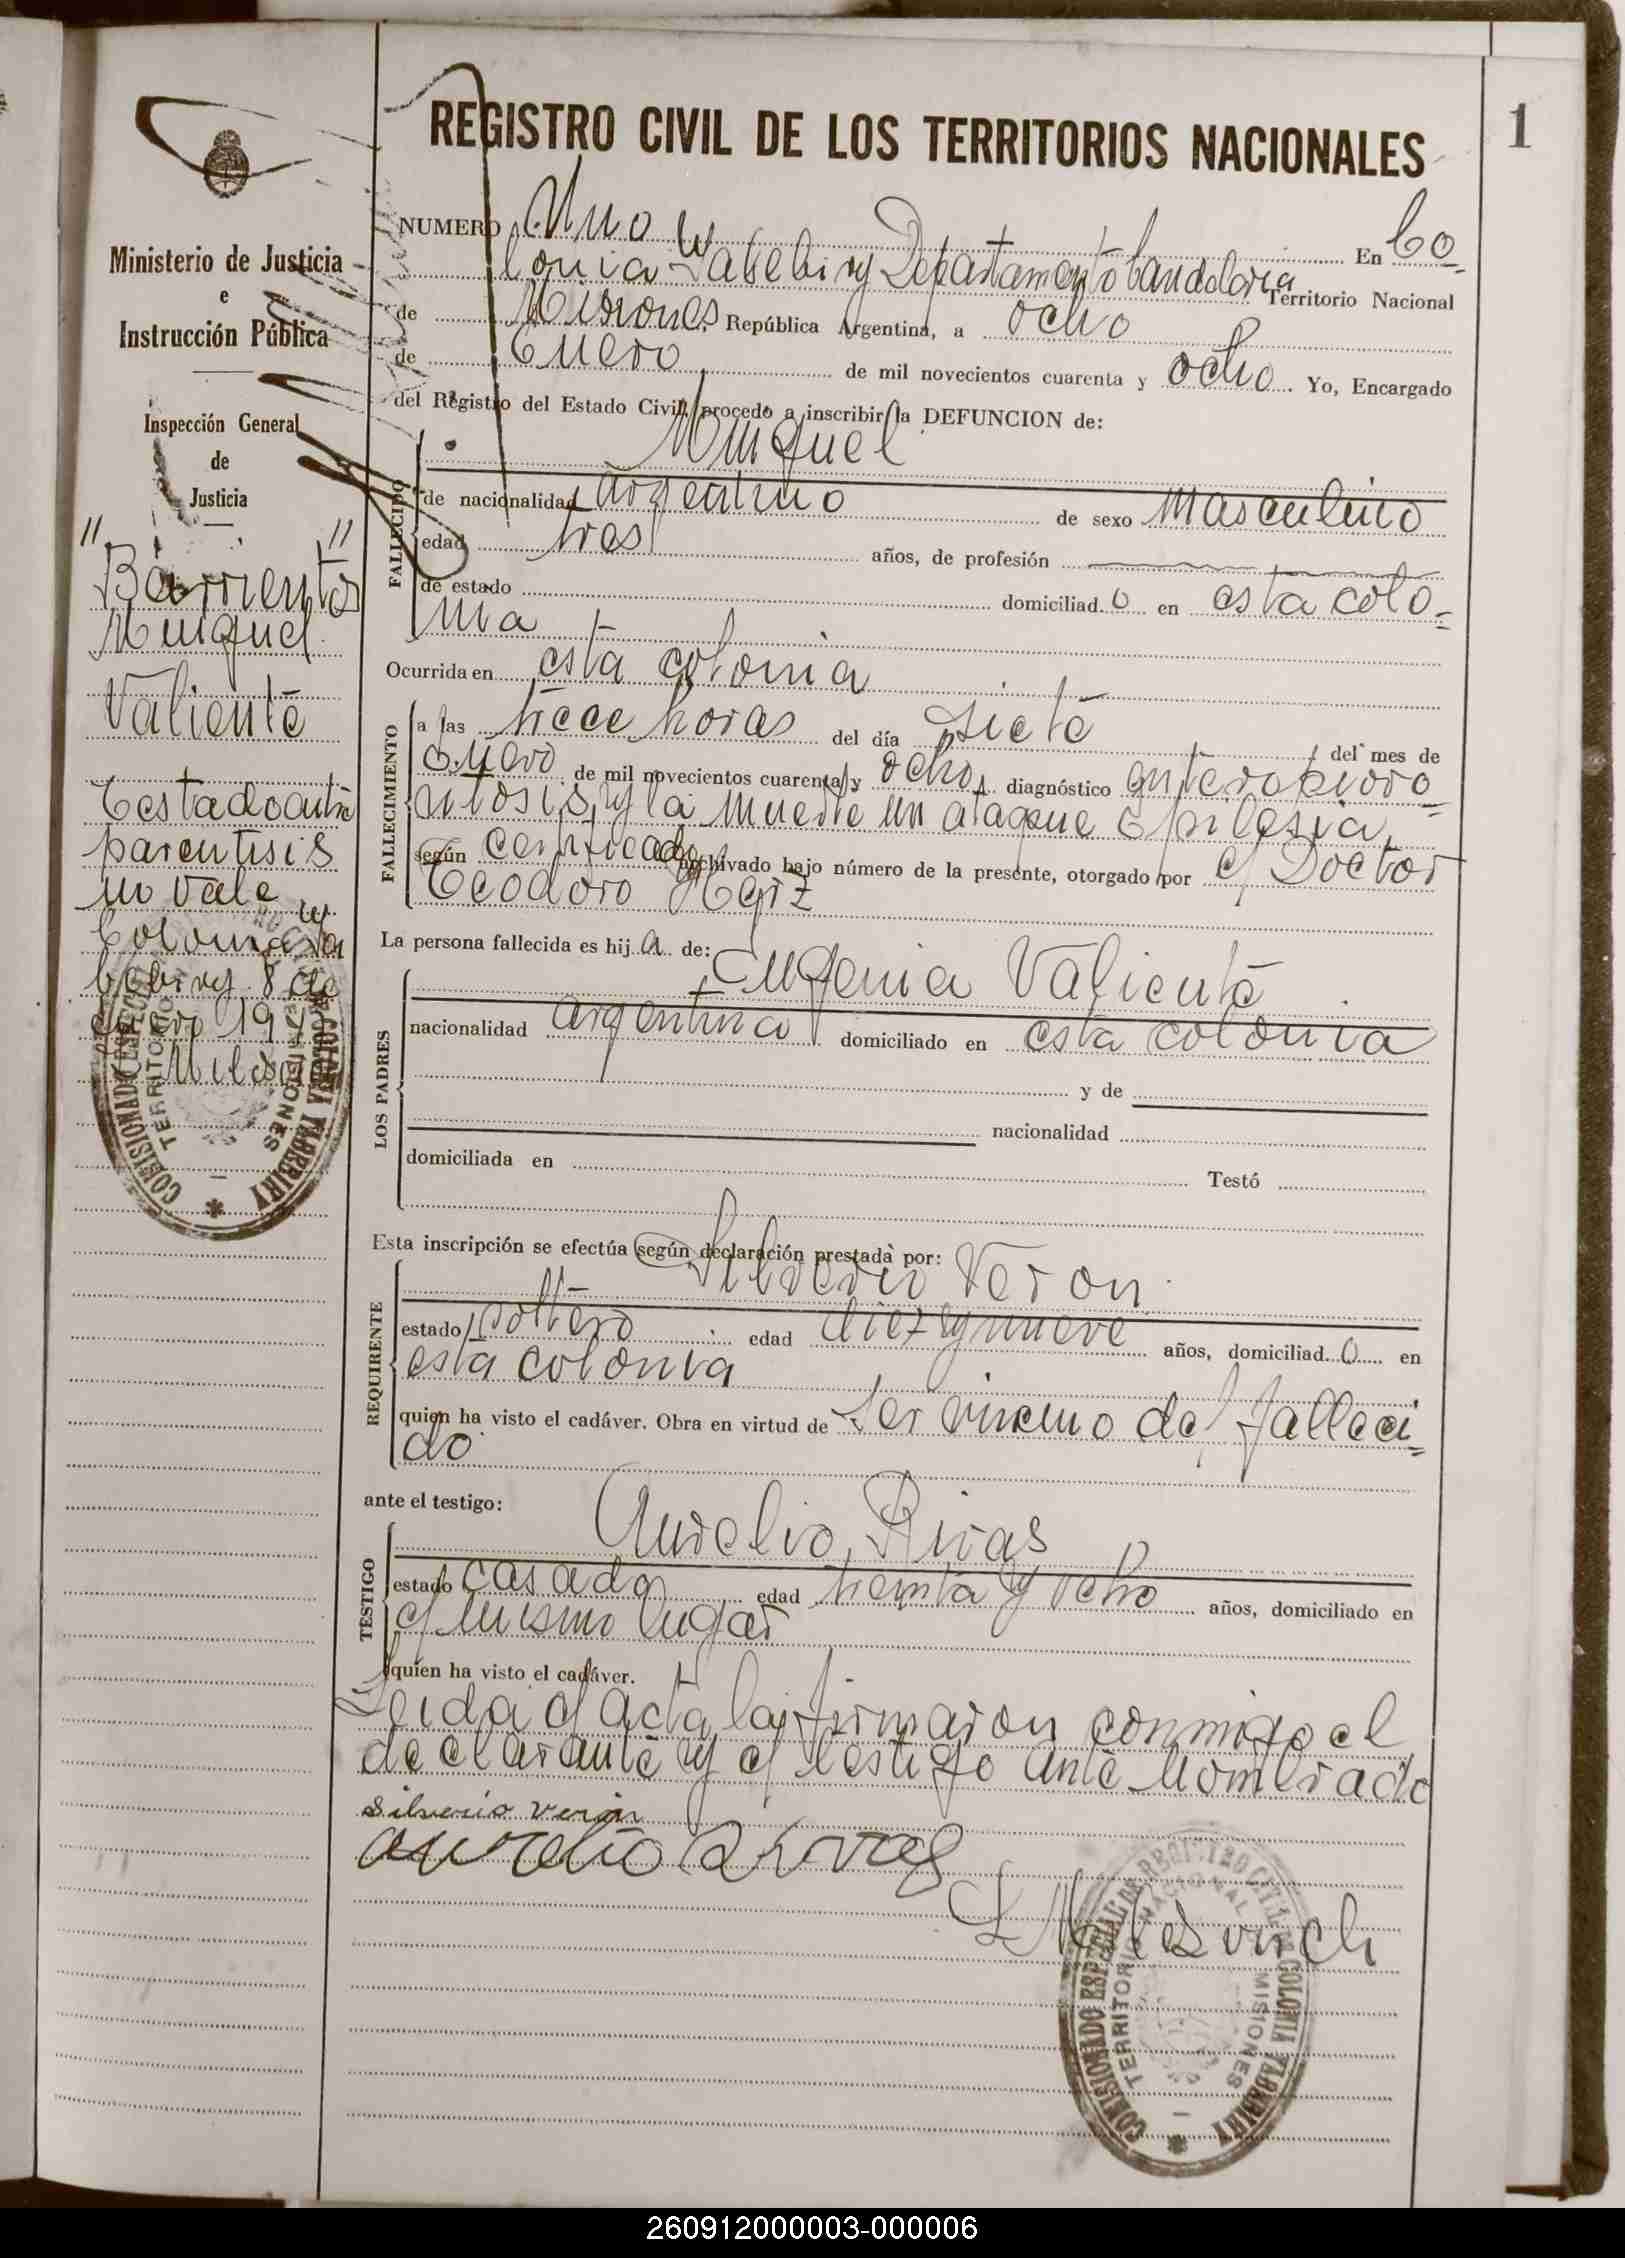 1
REGISTRO CIVIL DE LOS TERRITORIOS NACIONALES
Ministerio de Justicia
e
Instrucción Pública
Inspección General
de
Justicia
" "
Barrientos
Miguel
Valiente
Testado entre
parentisis
no vale
Colonia Ya
bebiry 8 de
Enero 194
COMISIONADO ESPECIAL
TERRITORIO
MISIONES
COLONIA YABEBIRY
NUMERO Uno En Co-
lonia Yabebiry Departamento Candelaria Territorio Nacional
de Misiones República Argentina, a ocho
de Enero de mil novecientos cuarenta y ocho. Yo, Encargado
del Registro del Estado Civil, procedo a inscribir la DEFUNCION de:
Miguel
FALLECIDO
de nacionalidad argentino de sexo masculino
edad tres años, de profesión
de estado domiciliad o en esta colo-
nia
Ocurrida en esta colonia
FALLECIMIENTO
a las trece horas del día siete del mes de
Enero de mil novecientos cuarenta y ocho, diagnóstico
y la muerte un ataque epilesia,
según certificado archivado bajo número de la presente, otorgado por el Doctor
Teodoro
La persona fallecida es hij a de:
LOS PADRES
Eugenia Valiente
nacionalidad argentina domiciliado en esta colonia
y de
nacionalidad
domiciliada en Testó
Esta inscripción se efectúa según declaración prestada por:
REQUIRENTE
Silverio Veron
estado soltero edad diez y nueve años, domiciliad o en
esta colonia
quien ha visto el cadáver. Obra en virtud de ser vincino del falleci-
do
ante el testigo:
TESTIGO
Aurelio Rivas
estado casado edad treinta y ocho años, domiciliado en
el mismo lugar
quien ha visto el cadáver.
Leida el acta la firmaron conmigo el
declarante y el testigo ante nombrado
silverio veron
aurelio Rivas
COMISIONADO ESPECIAL DE REGISTRO CIVIL
TERRITORIO NACIONAL
MISIONES
COLONIA YABEBIRY
260912000003-000006